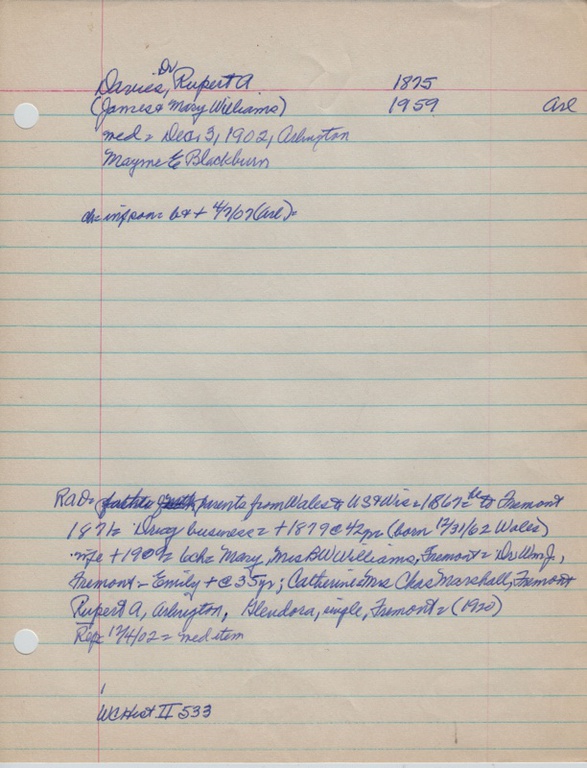 Dr
Davies, Rupert A 1875
(James & Mary Williams) 1959 Arl
md = Dec. 3, 1902, Arlington
Mayme E Blackburn
ch = inf son = b & + 4/7/07 (Arl) =
RAD = parents from Wales to US & Wis = 1867 = to Fremont
1871 = Drug business = + 1879 @ 42yr (born 12/31/62 Wales)
wife + 1909 = 6ch = Mary, Mrs B W Williams, Fremont = Dr Wm J.,
Fremont - Emily + @ 35yr; Catherine = Mrs Chas Marshall, Fremont
Rupert A, Arlington, Glendora, single, Fremont = (1920)
Rep = 12/4/02 = med item
WC Hist II 533